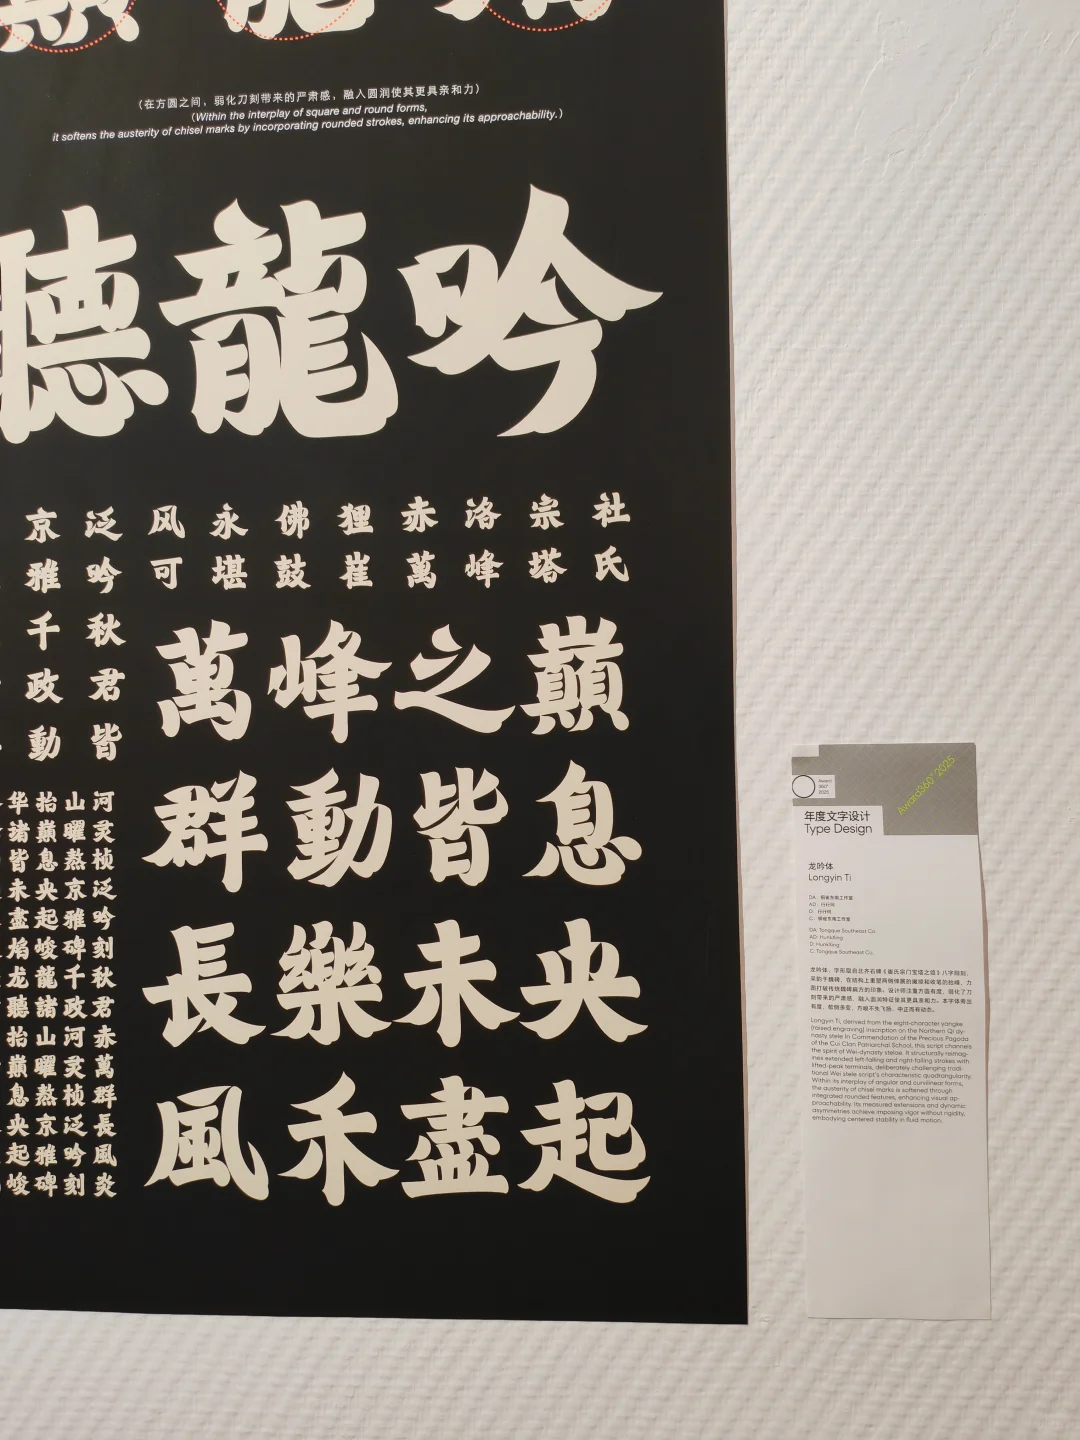 （在方圆之间，弱化刀刻带来的严肃感，融入圆润使其更具亲和力）
（Within the interplay of square and round forms,
it softens the austerity of chisel marks by incorporating rounded strokes, enhancing its approachability.）
聽龍吟
京 泛 风 永 佛 狸 赤 洛 宗 社
雅 吟 可 堪 鼓 崔 萬 峰 塔 氏
千 秋
政 君
動 皆
萬峰之巔
群動皆息
長樂未央
風禾盡起
华抬山河
诸巅曜灵
皆息熬桢
未央京泛
盡起雅吟
焰峻碑刻
龙龍千秋
聽諸政君
抬山河赤
巅曜灵萬
息熬桢群
央京泛長
起雅吟風
峻碑刻炎
Award
360°
2025
Award360°2025
年度文字设计
Type Design
龙吟体
Longyin Ti
DA: Tongque Southeast Co.
AD: HunkXing
D: HunkXing
C: Tongque Southeast Co.
龙吟体，字形取自北齐石碑《崔氏宗门宝塔之颂》八字阳刻，
Longyin Ti, derived from the eight-character yangke
(raised engraving) inscription on the Northern Qi dy-
nasty stele In Commendation of the Precious Pagoda
of the Cui Clan Patriarchal School, this script channels
the spirit of Wei-dynasty steloe. It structurally reimag-
ines extended left-falling and right-falling strokes with
lifted-peak terminals, deliberately challenging tradi-
tional Wei stele script's characteristic quadrangularity.
Within its interplay of angular and curvilinear forms,
the austerity of chisel marks is softened through
integrated rounded features, enhancing visual ap-
proachability. Its measured extensions and dynamic
asymmetries achieve imposing vigor without rigidity,
embodying centered stability in fluid motion.